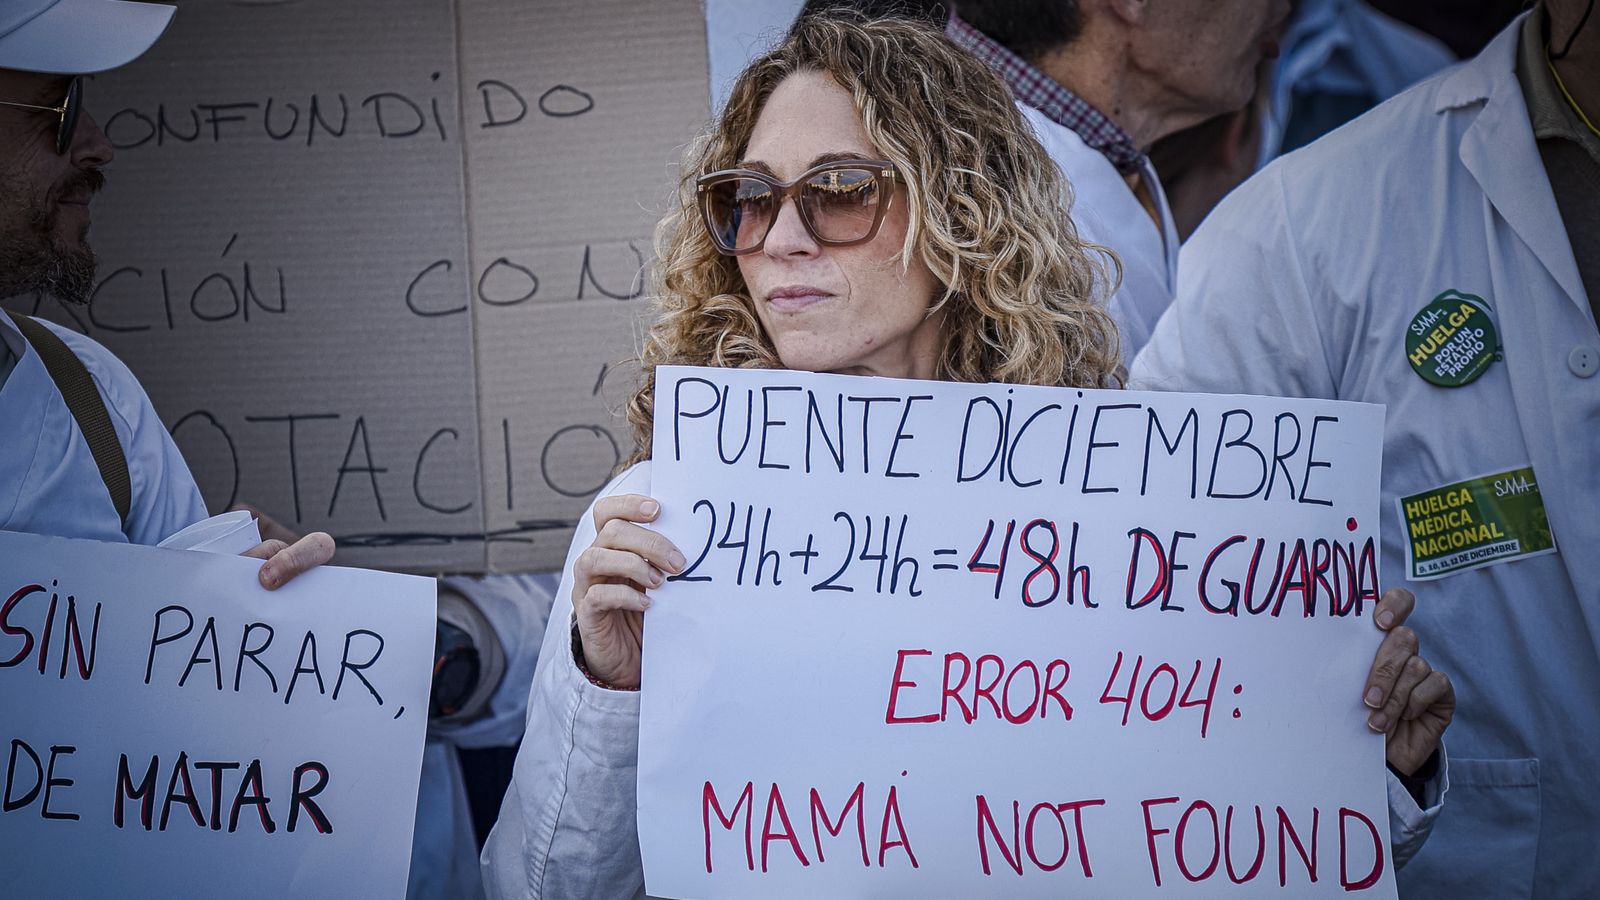 ONFUNDIDO
ACIÓN CON
OTACIÓ
SIN PARAR,
DE MATAR
PUENTE DICIEMBRE
24h+24h=48h DE GUARDIA
ERROR 404:
MAMÁ NOT FOUND
SMA
HUELGA
POR UN
ESTATUTO
PROPIO
SMA
HUELGA
MÉDICA
NACIONAL
9, 10, 11, 12 DE DICIEMBRE